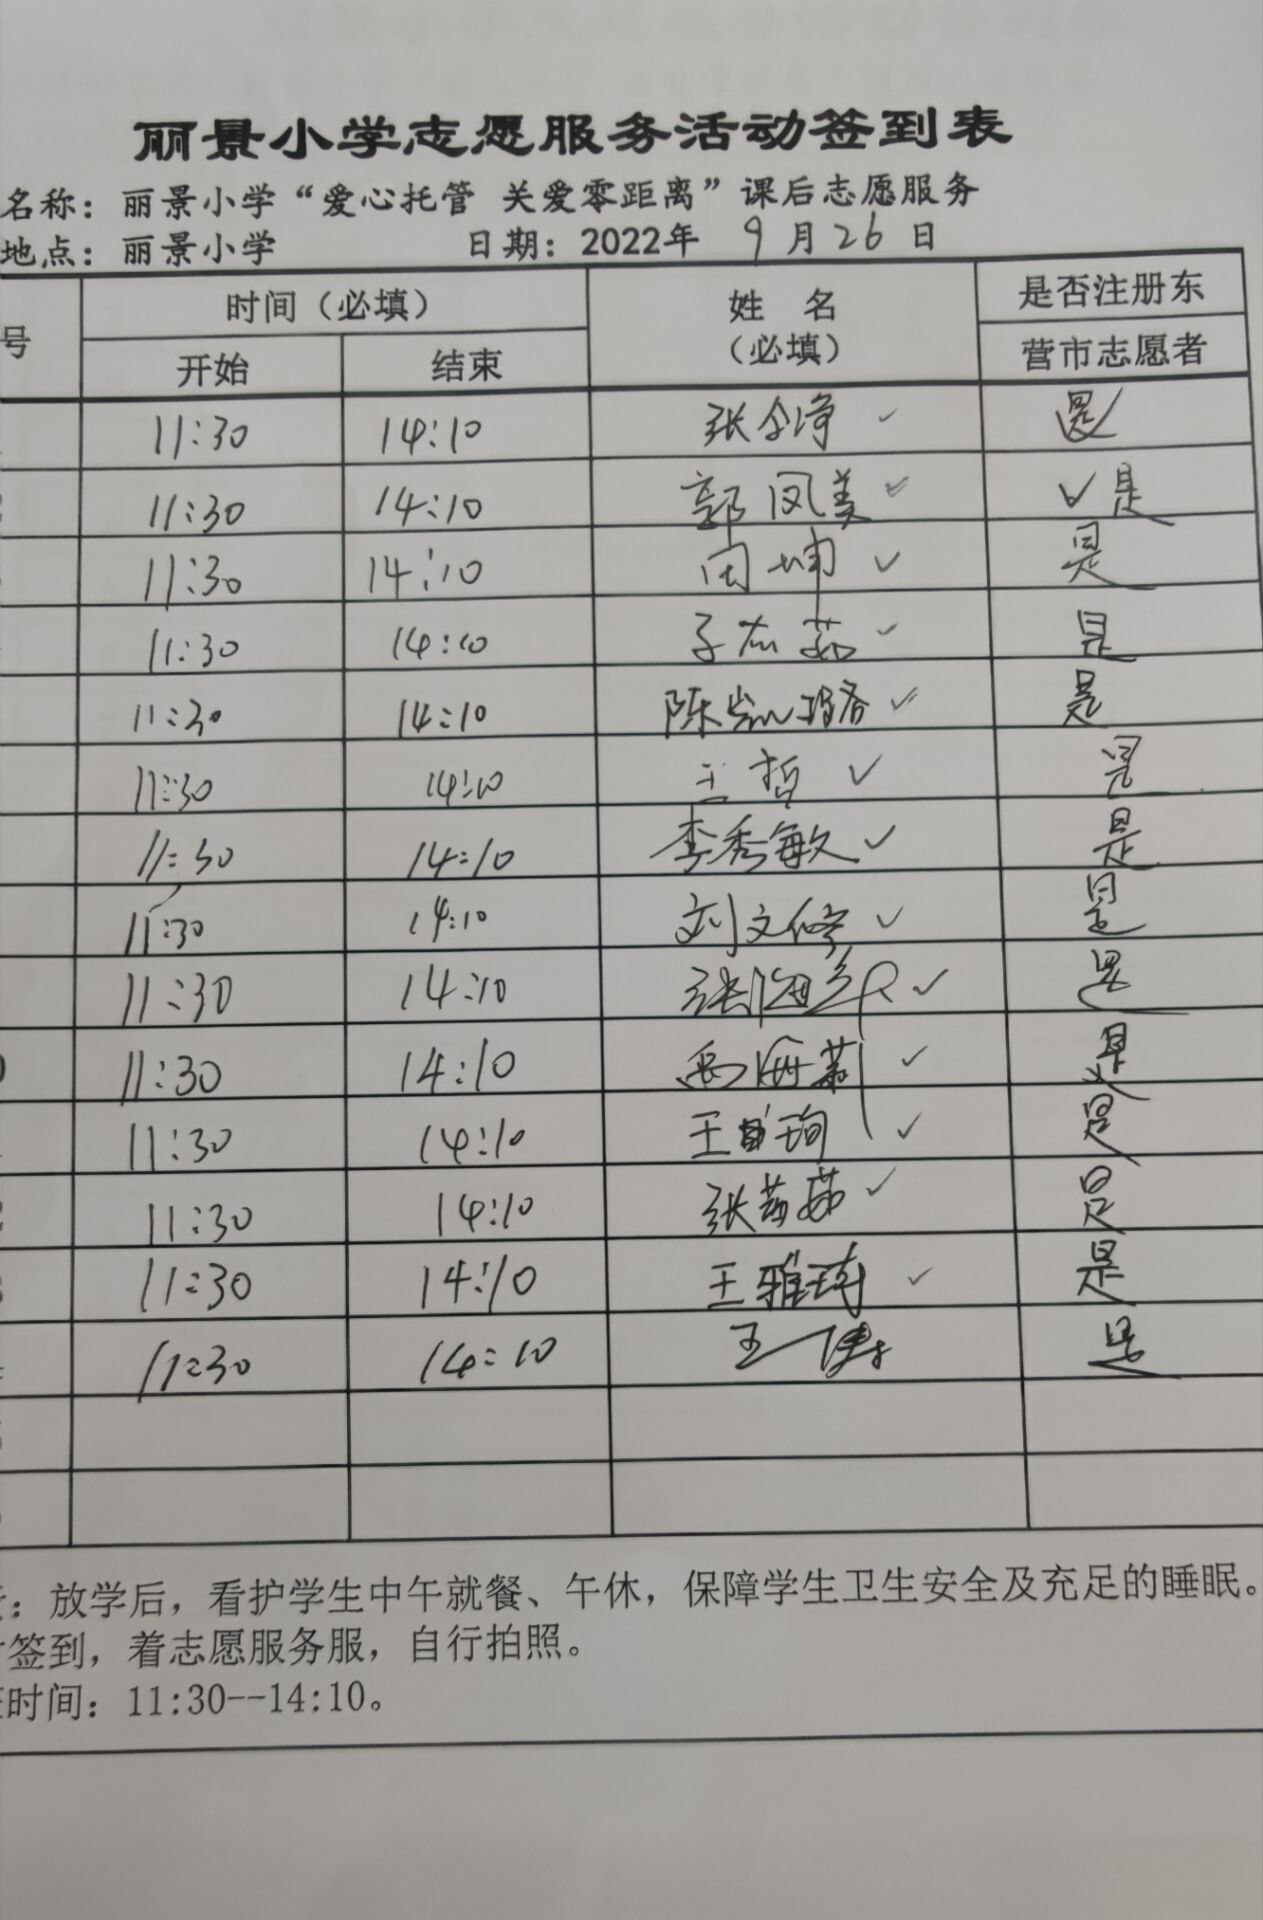 丽景小学志愿服务活动签到表
名称：丽景小学“爱心托管 关爱零距离”课后志愿服务
地点：丽景小学 日期：2022年 9 月 26 日
号 时间（必填） 姓 名 （必填） 是否注册东
开始 结束 营市志愿者
11:30 14:10 张 净 ✓ 是
11:30 14:10 郭凤美 ✓ ✓是
11:30 14:10 田坤 ✓ 是
11:30 14:10 ✓ 是
11:30 14:10 陈凯璐 ✓ 是
11:30 14:10 王哲 ✓ 是
11:30 14:10 李秀敏 ✓ 是
11:30 14:10 刘文修 ✓ 是
11:30 14:10 张海 ✓ 是
11:30 14:10 海莉 ✓ 是
11:30 14:10 王 珣 ✓ 是
11:30 14:10 张茹 ✓ 是
11:30 14:10 王雅琦 ✓ 是
11:30 14:10 王 涛 是
：放学后，看护学生中午就餐、午休，保障学生卫生安全及充足的睡眠。
签到，着志愿服务服，自行拍照。
时间：11:30--14:10。